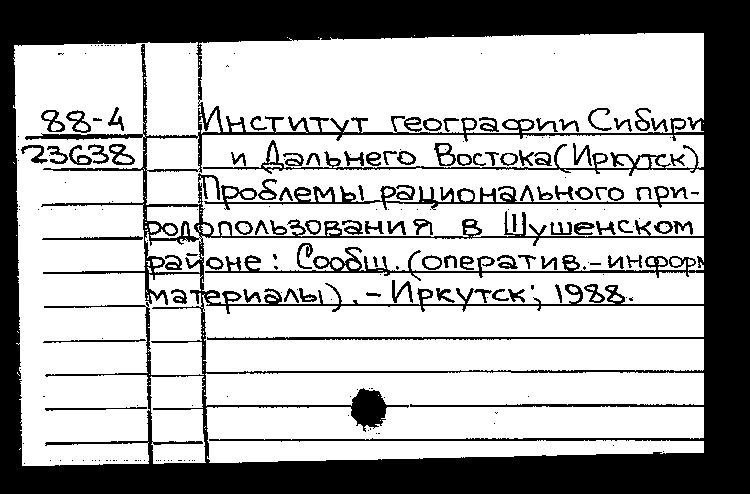 88-4 Институт географии Сибири
23638 и Дальнего Востока (Иркутск)
Проблемы рационального при-
родопользования в Шушенском
районе: Сообщ. (оператив.-информ
материалы). - Иркутск; 1988.